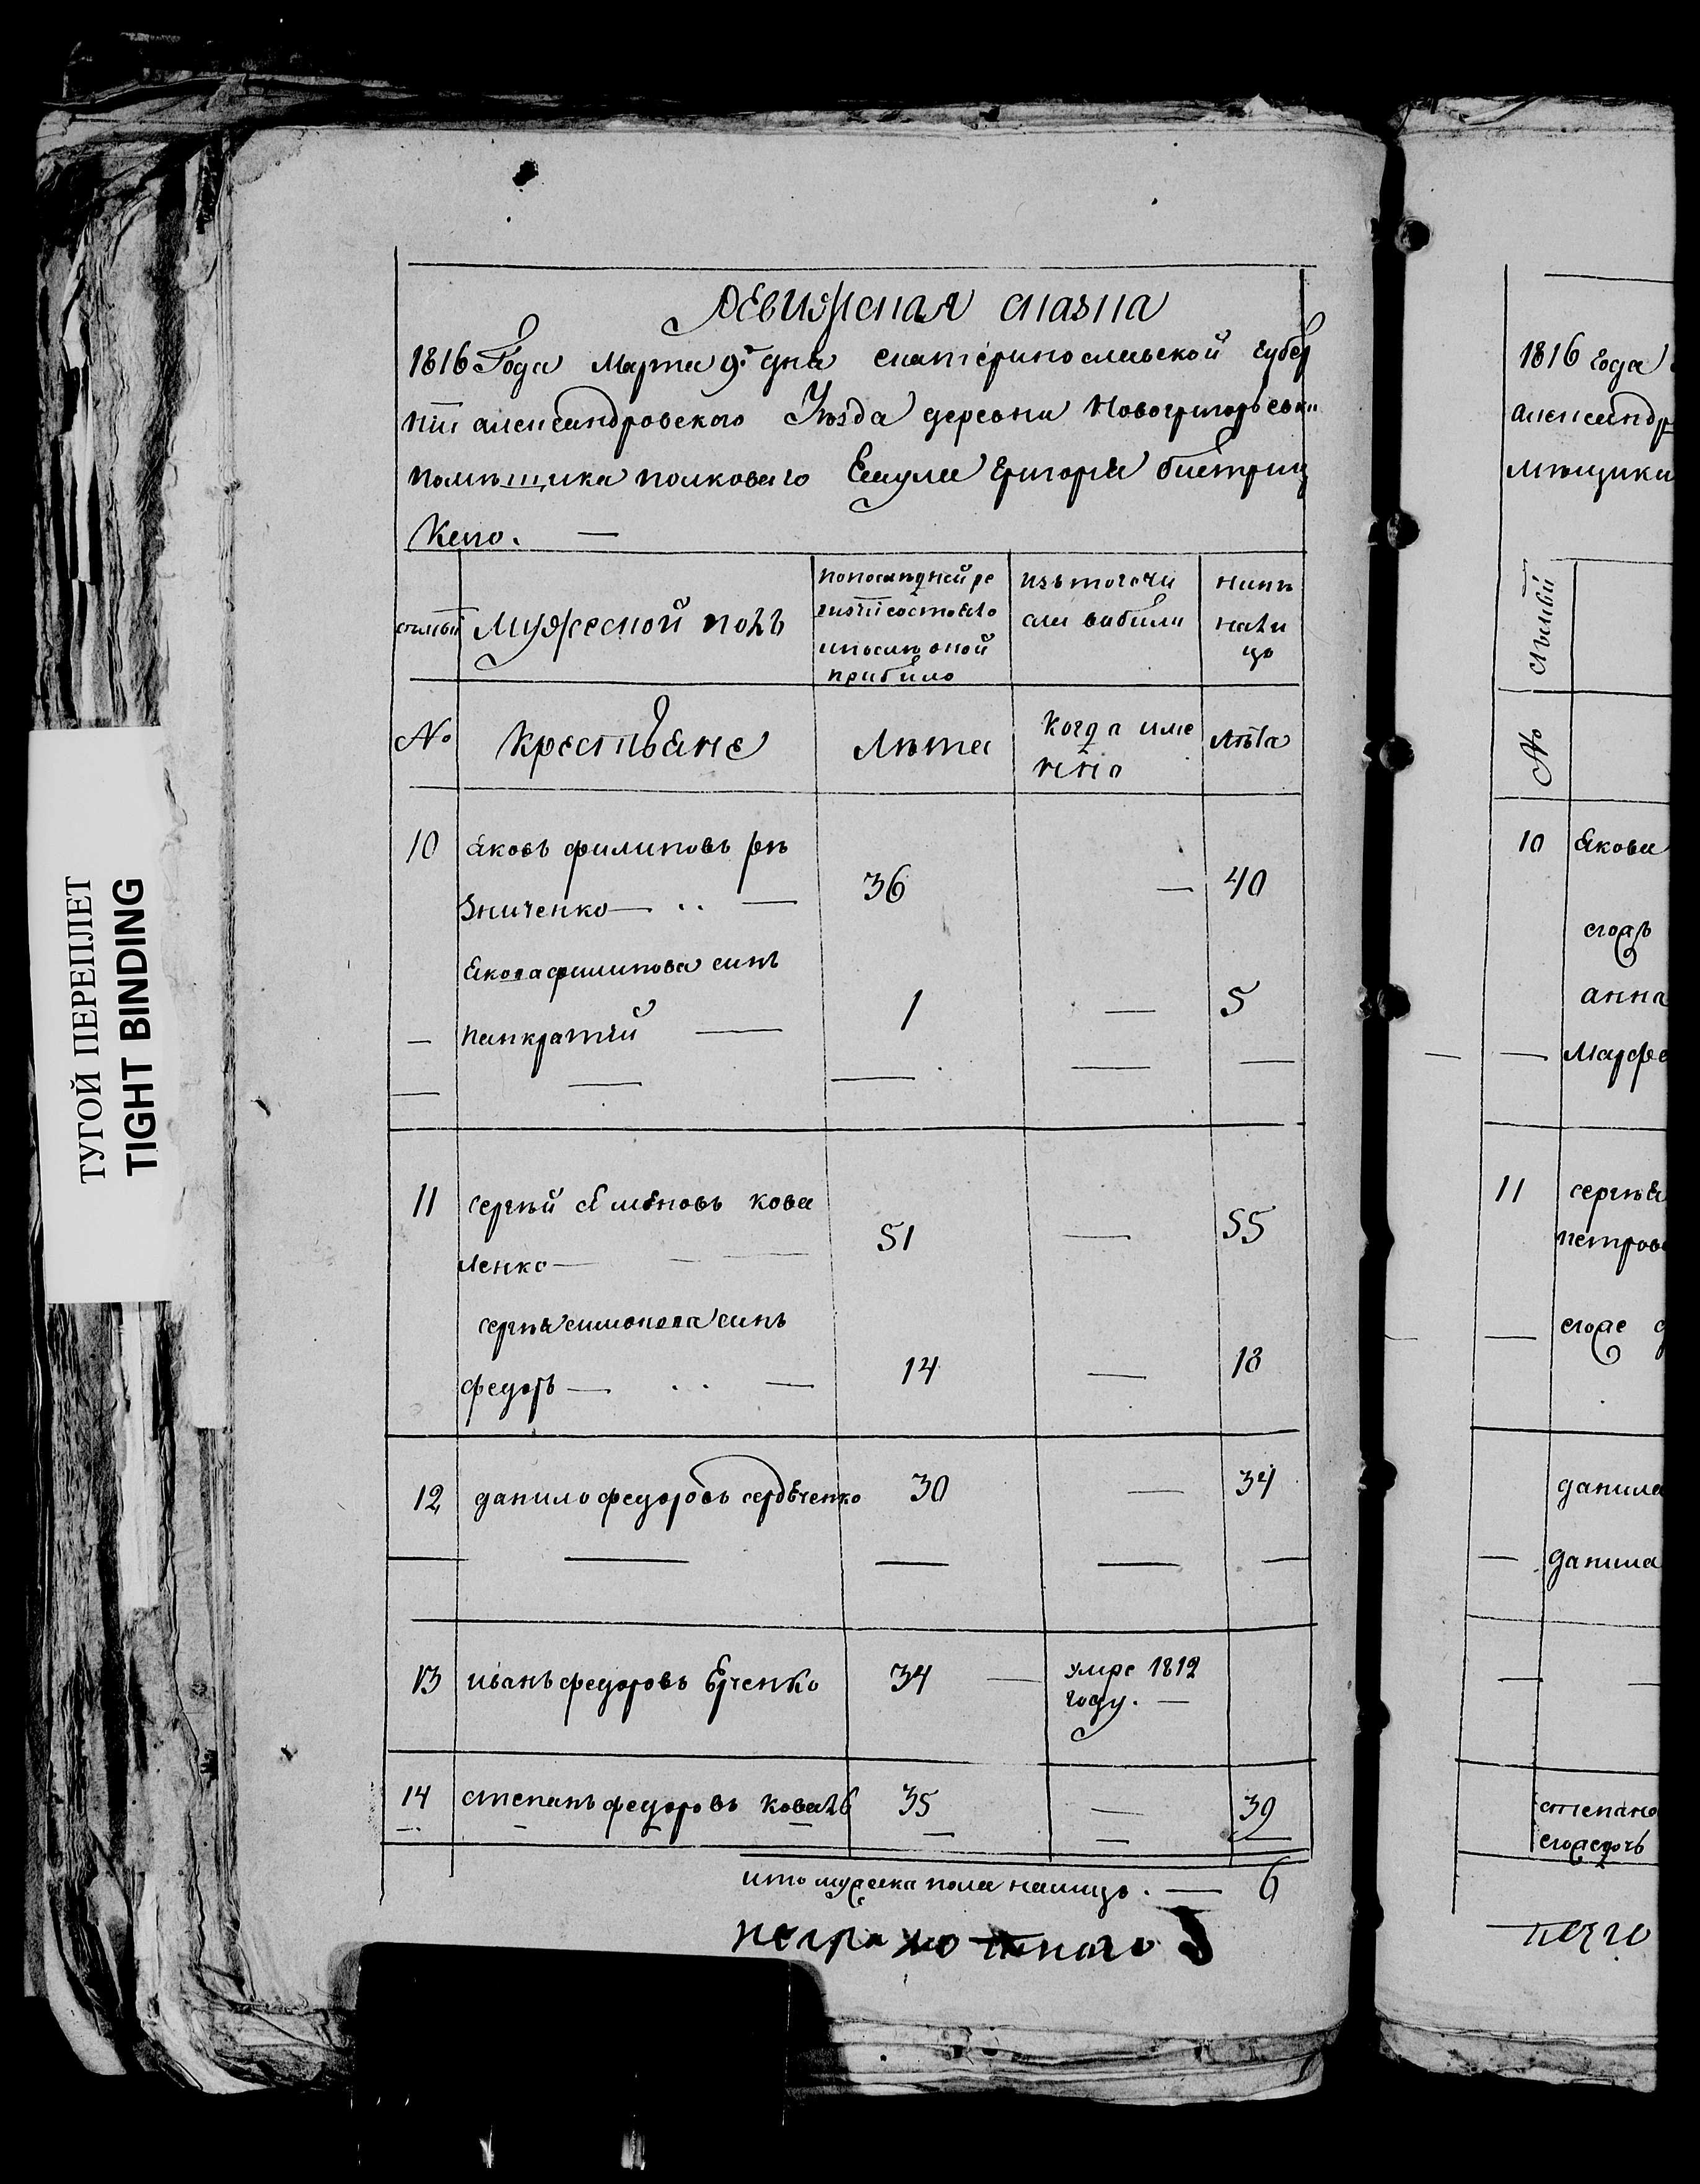 ТУГОЙ ПЕРЕПЛЕТ
TIGHT BINDING
Ревижская сказка
1816 Года Марта 9го дня екатеринославской губер
нїи александровского Уѣзда деревни Новогригорьевки
помѣщика полковаго Есаула Григорїя быстриц
каго. —
семьи
Мужеской полъ
попослѣдней ре
визїи состояло
ипослѣ оной
прибыло
изътого чи
сла выбыли
нынѣ
нали
цо
№
Крестьяне
Лѣта
Когда име
нно
лѣта
10 яковъ филиповъ рѣ
зниченко — 36 — 40
якова филипова синъ
— панкратїй — 1 — 5
11 сергѣй симоновъ кова
ленко — 51 — 55
сергѣя симонова синъ
федоръ — 14 — 18
12 данило федоровъ сердѣченко 30 — 34
13 иванъ федоровъ 34 — умре 1812
году. —
14 степанъ федоровъ коваль 35 — 39
итого мужеска пола налицо. — 6
неграмотного
1816 года
александр
мѣщика
семьи
№
10 якова
егожъ
анна
— Марфа
11 сергѣя
петрова
— егоже
данила
— данила
степана
егождочь